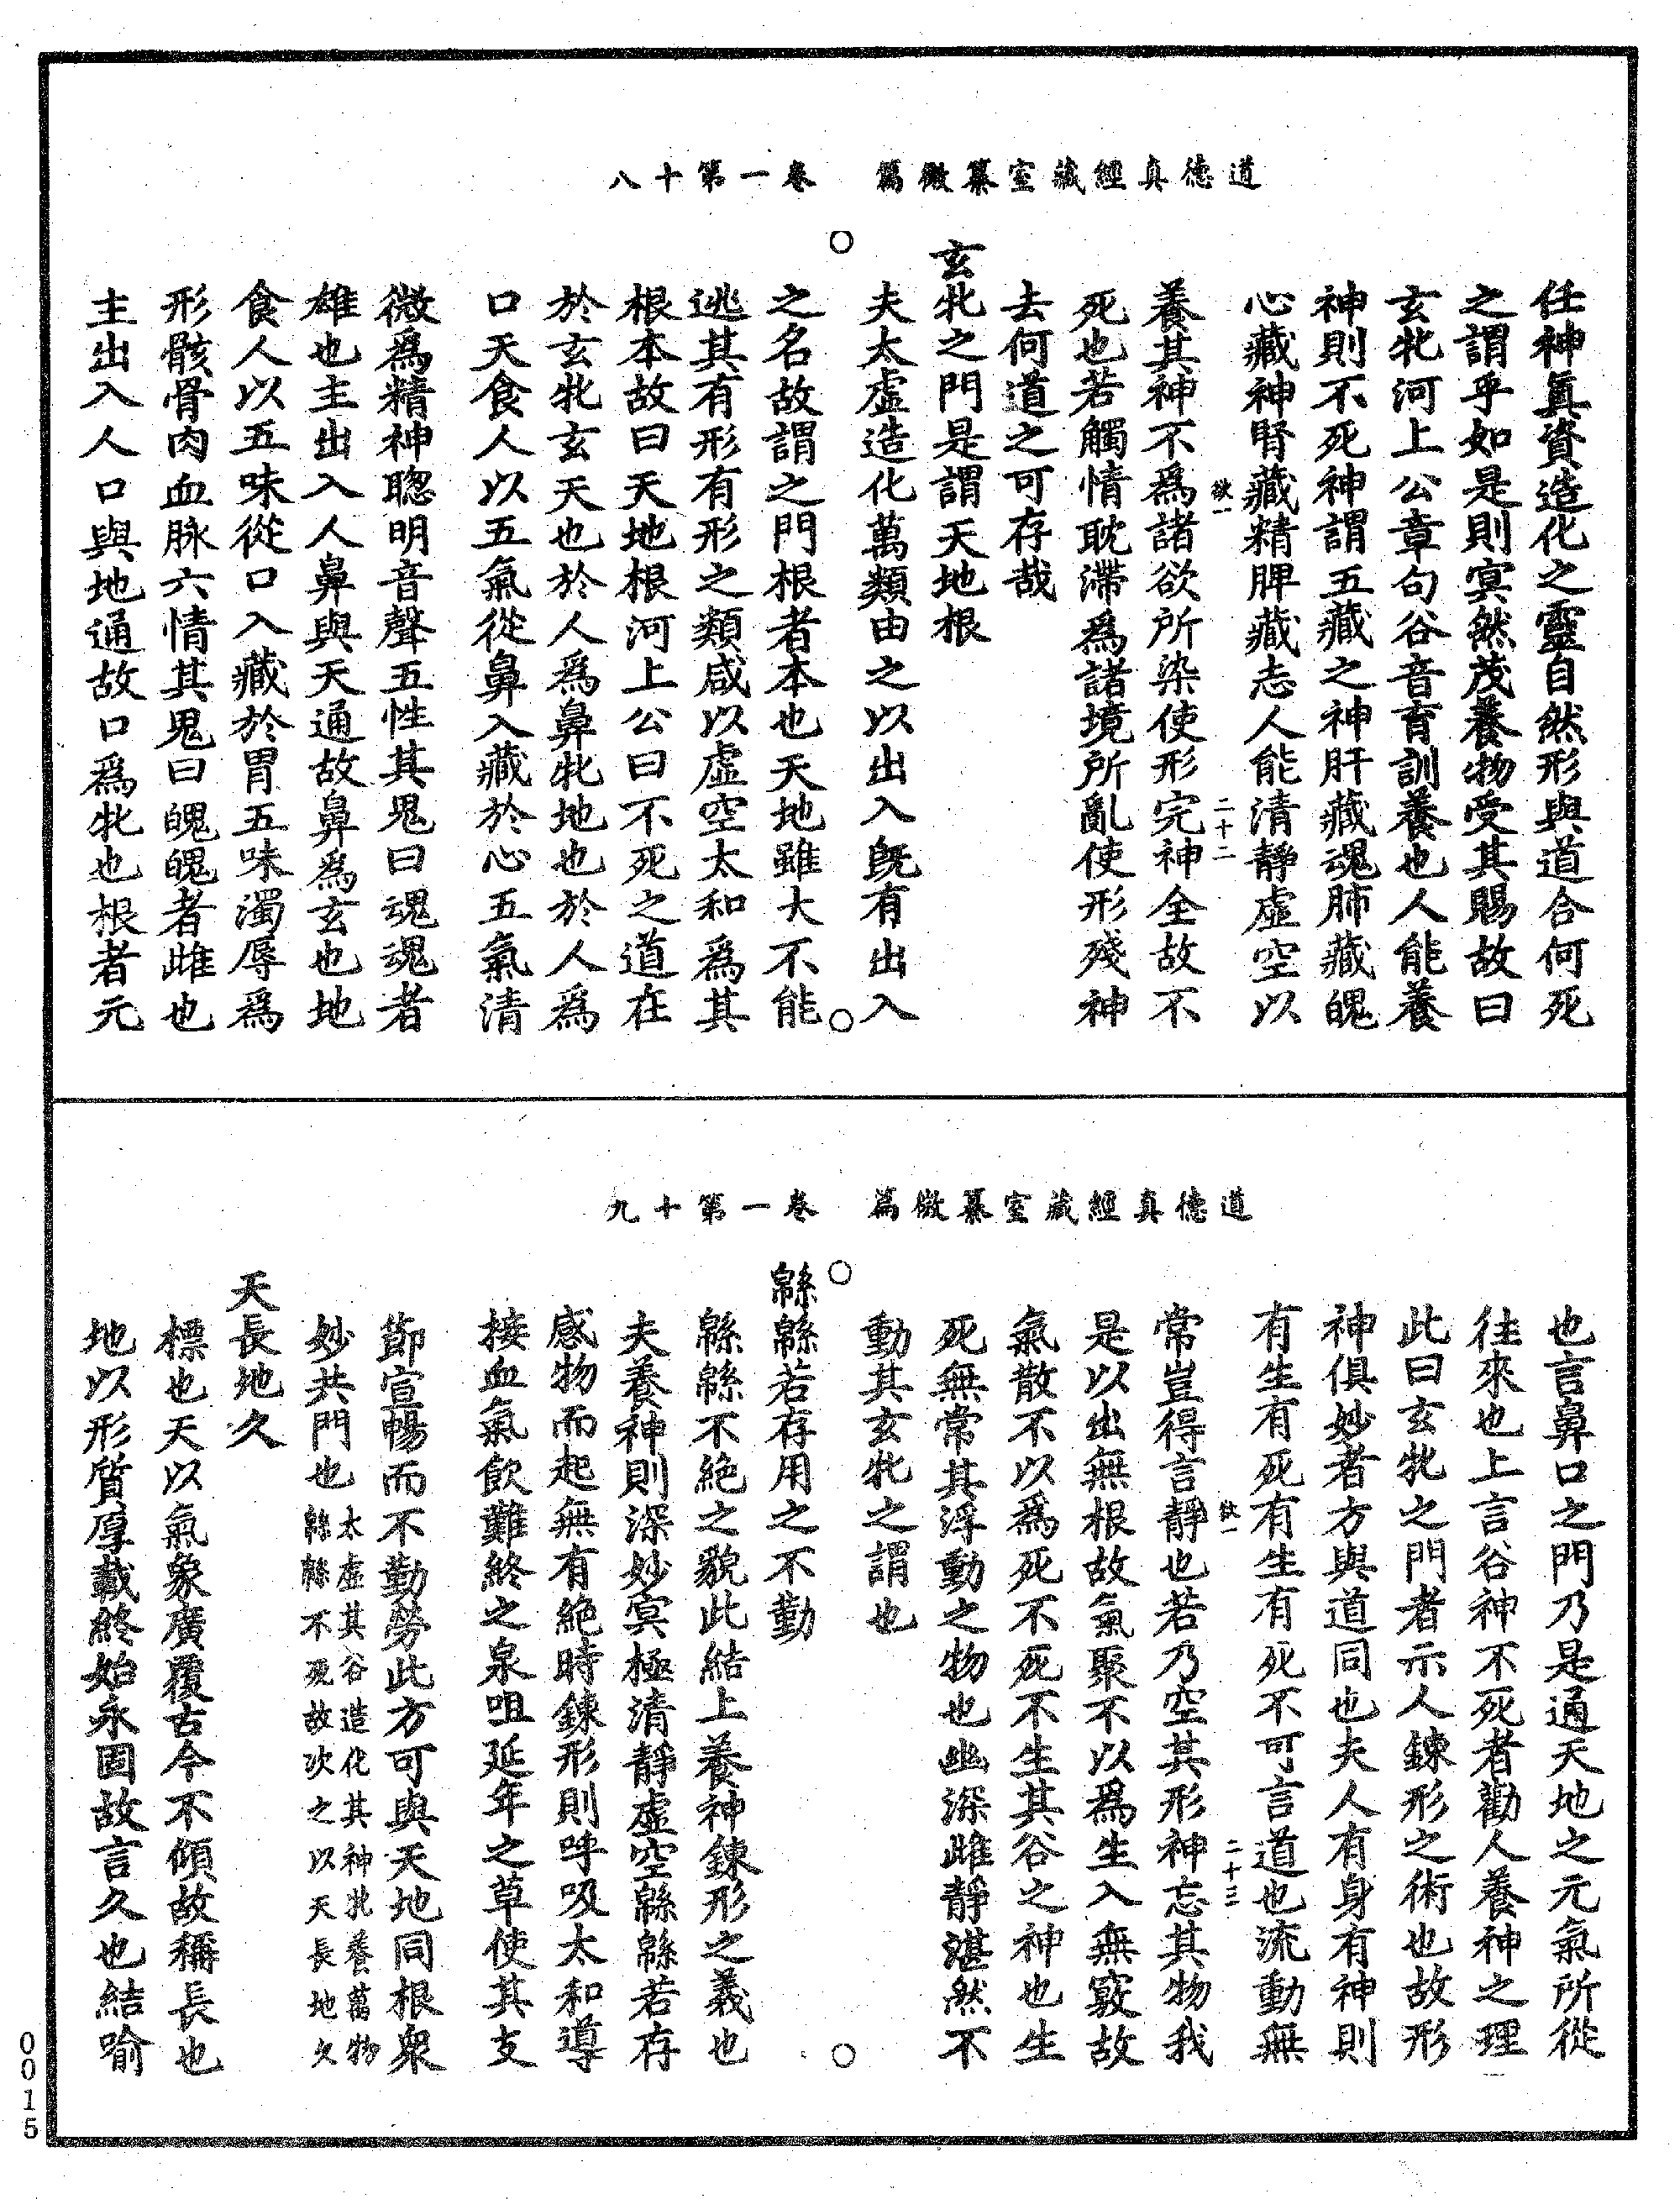 道德真經藏室纂微篇　卷一第十八
任神眞資造化之靈自然形與道合何死
之謂乎如是則㝠然茂養物受其賜故曰
玄牝河上公章句谷音育訓養也人能養
神則不死神謂五藏之神肝藏魂肺藏魄
心藏神腎藏精脾藏志人能清靜虛空以
欲一　二十二
養其神不爲諸欲所染使形完神全故不
死也若觸情耽滯爲諸境所亂使形殘神
去何道之可存哉
玄牝之門是謂天地根
夫太虛造化萬類由之以出入旣有出入
之名故謂之門根者本也天地雖大不能
逃其有形有形之類咸以虛空太和爲其
根本故曰天地根河上公曰不死之道在
於玄牝玄天也於人爲鼻牝地也於人爲
口天食人以五氣從鼻入藏於心五氣清
微爲精神聰明音聲五性其鬼曰魂魂者
雄也主出入人鼻與天通故鼻爲玄也地
食人以五味從口入藏於胃五味濁辱爲
形骸骨肉血脉六情其鬼曰魄魄者雌也
主出入人口與地通故口爲牝也根者元
道德真經藏室纂微篇　卷一第十九
也言鼻口之門乃是通天地之元氣所從
往來也上言谷神不死者勸人養神之理
此曰玄牝之門者示人鍊形之術也故形
神俱妙者方與道同也夫人有身有神則
有生有死有生有死不可言道也流動無
欲一　二十三
常豈得言靜也若乃空其形神忘其物我
是以出無根故氣聚不以爲生入無竅故
氣散不以爲死不死不生其谷之神也生
死無常其浮動之物也幽深雌靜湛然不
動其玄牝之謂也
緜緜若存用之不勤
緜緜不絕之貌此結上養神鍊形之義也
夫養神則深妙㝠極清靜虛空緜緜若存
感物而起無有絕時鍊形則呼吸太和導
接血氣飲難終之泉咀延年之草使其支
節宣暢而不勤勞此方可與天地同根衆
妙共門也太虛其谷造化其神牝養萬物緜緜不死故次之以天長地久
天長地久
標也天以氣象廣覆古今不傾故稱長也
地以形質厚載終始永固故言久也結喻
0015